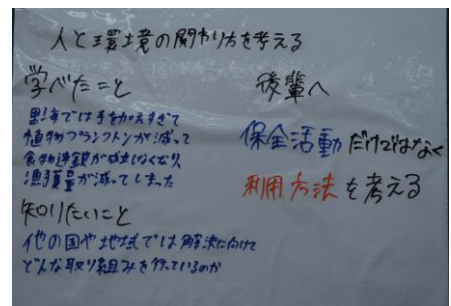 人と環境の関わり方を考える
学べたこと
里海では手を加えすぎて
植物プランクトンが減って
食物連鎖が成立しなくなり、
漁獲量が減ってしまった
知りたいこと
他の国や地域では解決に向けて
どんな取り組みを行っているのか
後輩へ
保全活動だけではなく
利用方法を考える